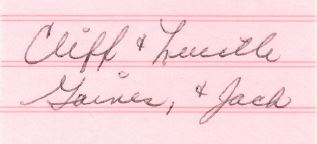 Cliff & Lucille
Gaines, & Jack